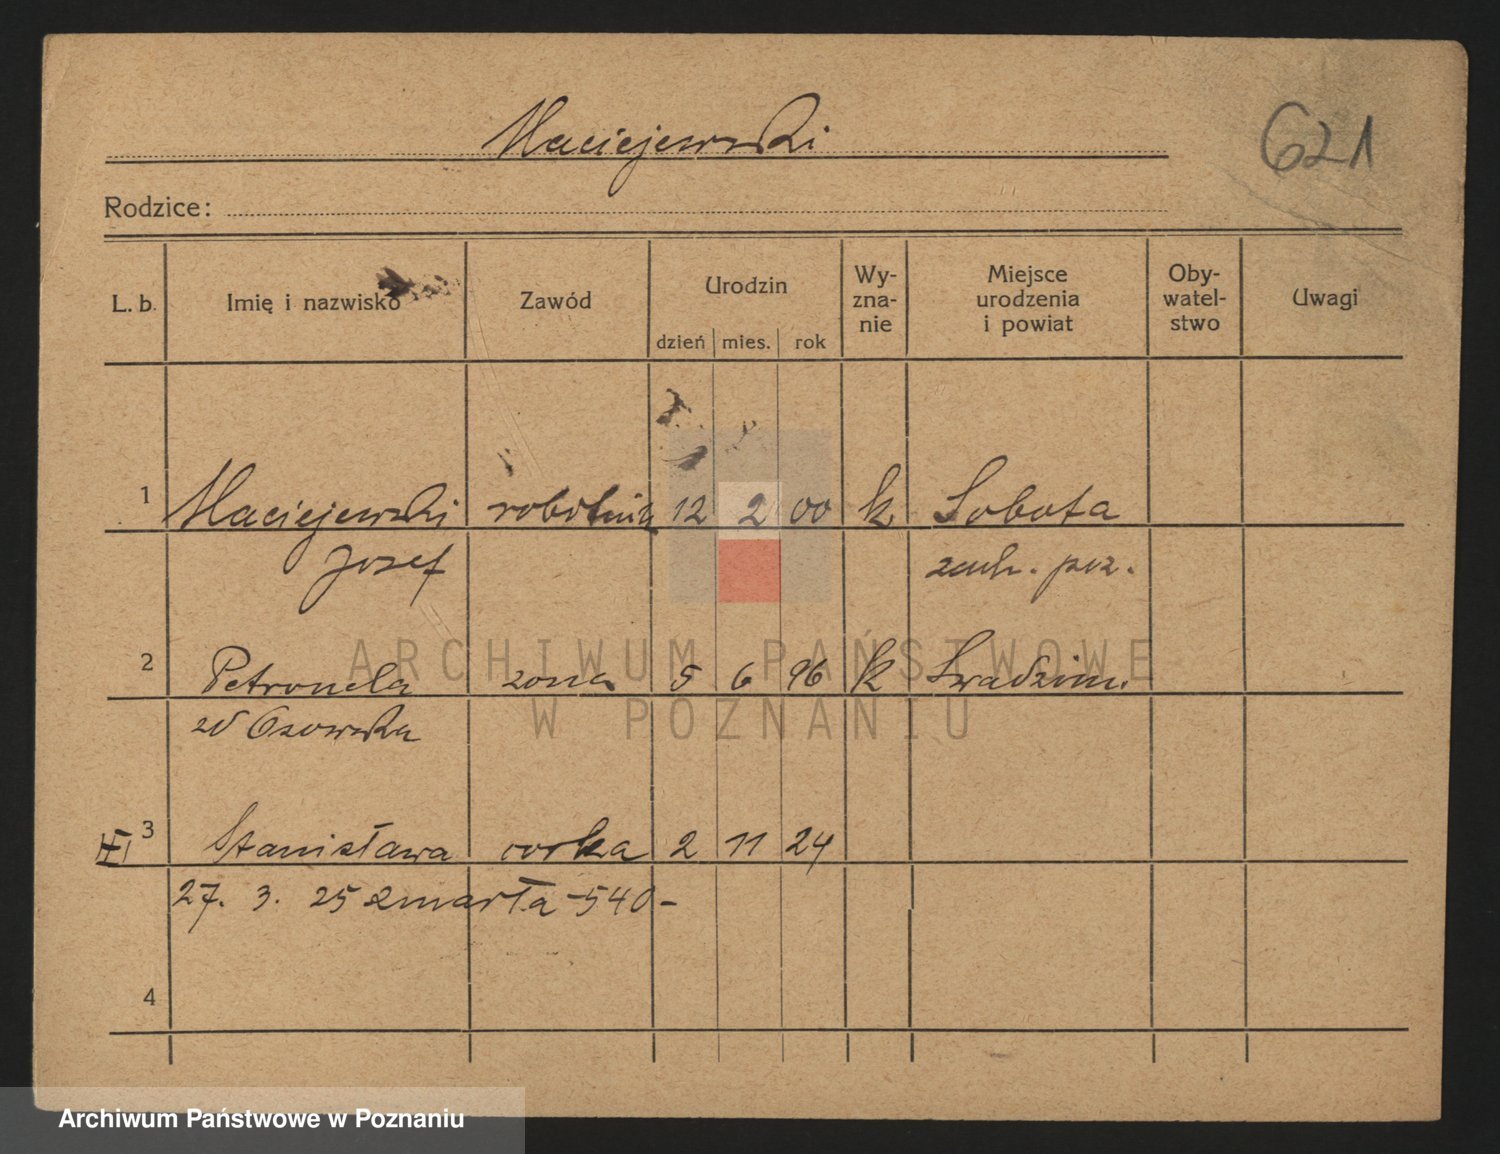 Maciejewski
621
Rodzice:
L. b. Imię i nazwisko Zawód Urodzin dzień mies. rok Wy- zna- nie Miejsce urodzenia i powiat Oby- watel- stwo Uwagi
1 Maciejewski robotnik 12 2 00 k Sobota
Josef zach. poz.
2 Petronela zona 5 6 96 k Swadzim.
zd Ozowska
3 Stanisława corka 2 11 24
27. 3. 25 zmarła -540-
4
ARCHIWUM PAŃSTWOWE
W POZNANIU
Archiwum Państwowe w Poznaniu